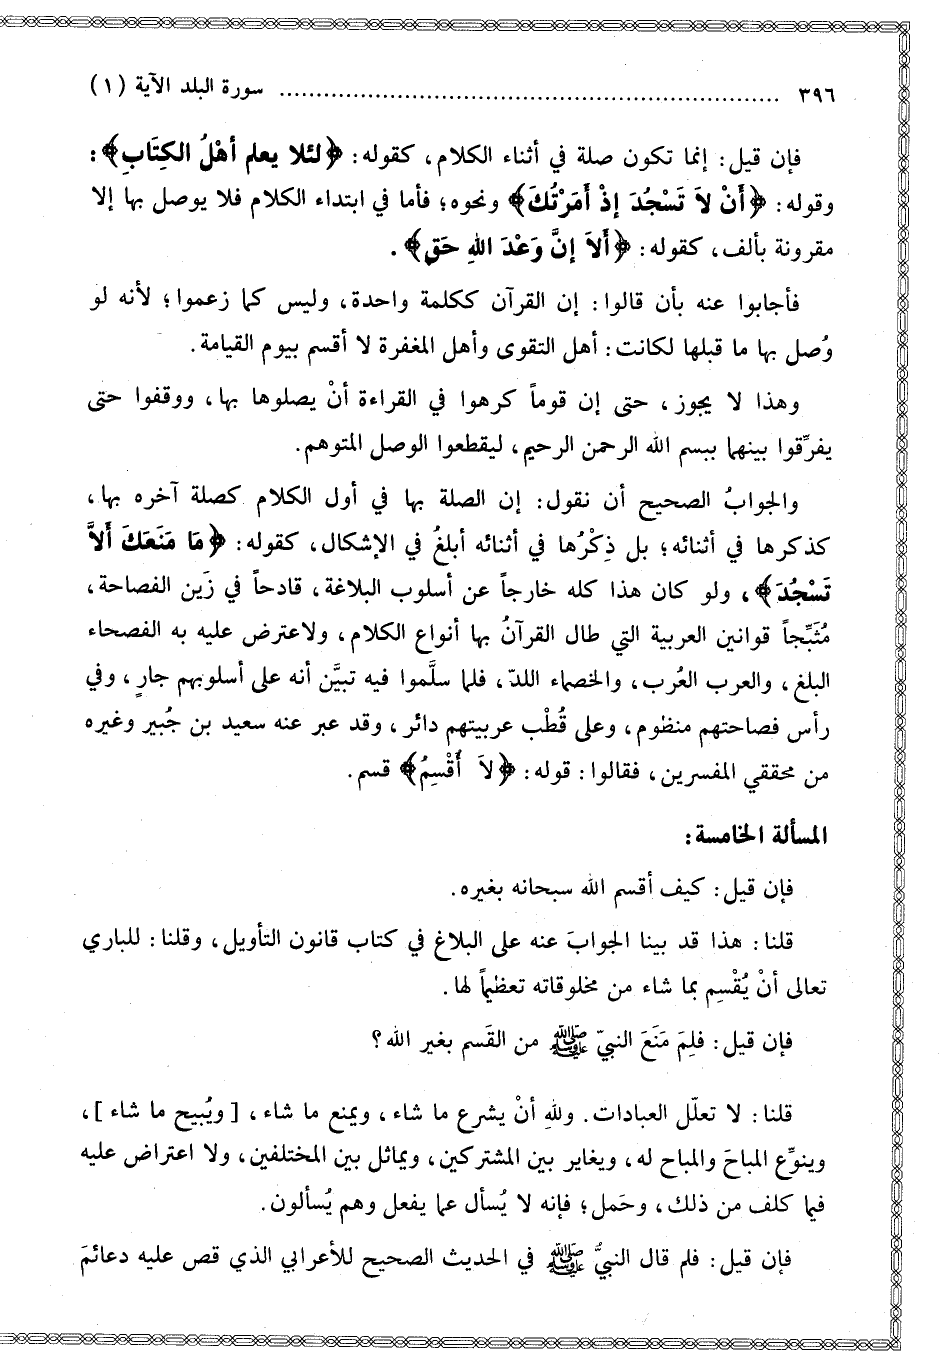 ٣٩٦ ..................................................................... سورة البلد الآية (١)
فإن قيل: إنما تكون صلة في أثناء الكلام، كقوله: ﴿لئلا يعلم أهْلُ الكِتَابِ﴾:
وقوله: ﴿أَنْ لاَ تَسْجُدَ إذْ أمَرْتُكَ﴾ ونحوه؛ فأما في ابتداء الكلام فلا يوصل بها إلا
مقرونة بألف، كقوله: ﴿ألاَ إنَّ وَعْدَ اللهِ حَق﴾.
فأجابوا عنه بأن قالوا: إن القرآن ككلمة واحدة، وليس كما زعموا؛ لأنه لو
وُصل بها ما قبلها لكانت: أهل التقوى وأهل المغفرة لا أقسم بيوم القيامة.
وهذا لا يجوز، حتى إن قوماً كرهوا في القراءة أنْ يصلوها بها، ووقفوا حتى
يفرِّقوا بينهما ببسم الله الرحمن الرحيم، ليقطعوا الوصل المتوهم.
والجوابُ الصحيح أن نقول: إن الصلة بها في أول الكلام كصلة آخره بها،
كذكرها في أثنائه؛ بل ذِكْرُها في أثنائه أبلغُ في الإشكال، كقوله: ﴿مَا مَنَعَكَ ألاَّ
تَسْجُدَ﴾، ولو كان هذا كله خارجاً عن أسلوب البلاغة، قادحاً في زَين الفصاحة،
مُثَبِّجاً قوانين العربية التي طال القرآنُ بها أنواع الكلام، ولاعترض عليه به الفصحاء
البلغ، والعرب العُرب، والخصماء اللدّ، فلما سلَّموا فيه تبيَّن أنه على أسلوبهم جارٍ، وفي
رأس فصاحتهم منظوم، وعلى قُطْب عربيتهم دائر، وقد عبر عنه سعيد بن جُبير وغيره
من محققي المفسرين، فقالوا: قوله: ﴿لاَ أُقْسِمُ﴾ قسم.
المسألة الخامسة:
فإن قيل: كيف أقسم الله سبحانه بغيره.
قلنا: هذا قد بينا الجوابَ عنه على البلاغ في كتاب قانون التأويل، وقلنا: للباري
تعالى أنْ يُقْسِم بما شاء من مخلوقاته تعظيماً لها.
فإن قيل: فلِمَ مَنَعَ النبيّ ﷺ من القَسم بغير الله؟
قلنا: لا تعلّل العبادات. وللهِ أنْ يشرع ما شاء، ويمنع ما شاء، [ويُبيح ما شاء]،
وينوِّع المباحَ والمباح له، ويغاير بين المشتركين، ويماثل بين المختلفين، ولا اعتراض عليه
فيما كلف من ذلك، وحَمل؛ فإنه لا يُسأل عما يفعل وهم يُسألون.
فإن قيل: فلم قال النبيُّ ﷺ في الحديث الصحيح للأعرابي الذي قص عليه دعائمَ